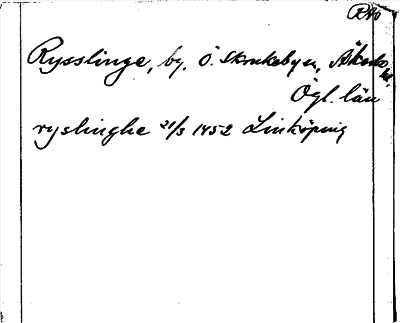 RA0
Rysslinge, by, Ö. Skrukeby sn, Åkerbo hd,
Ögl. län
ryslinghe 21/3 1452 Linköping